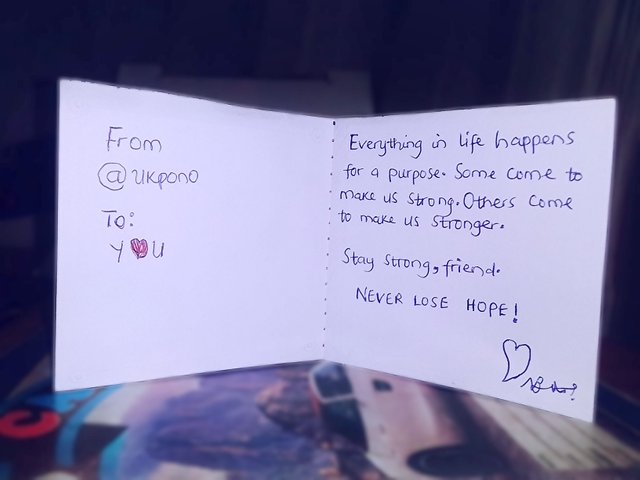 From
@ukpono
To:
Y❤U
Everything in life happens
for a purpose. Some come to
make us strong. Others come
to make us stronger.
Stay strong, friend.
NEVER LOSE HOPE!